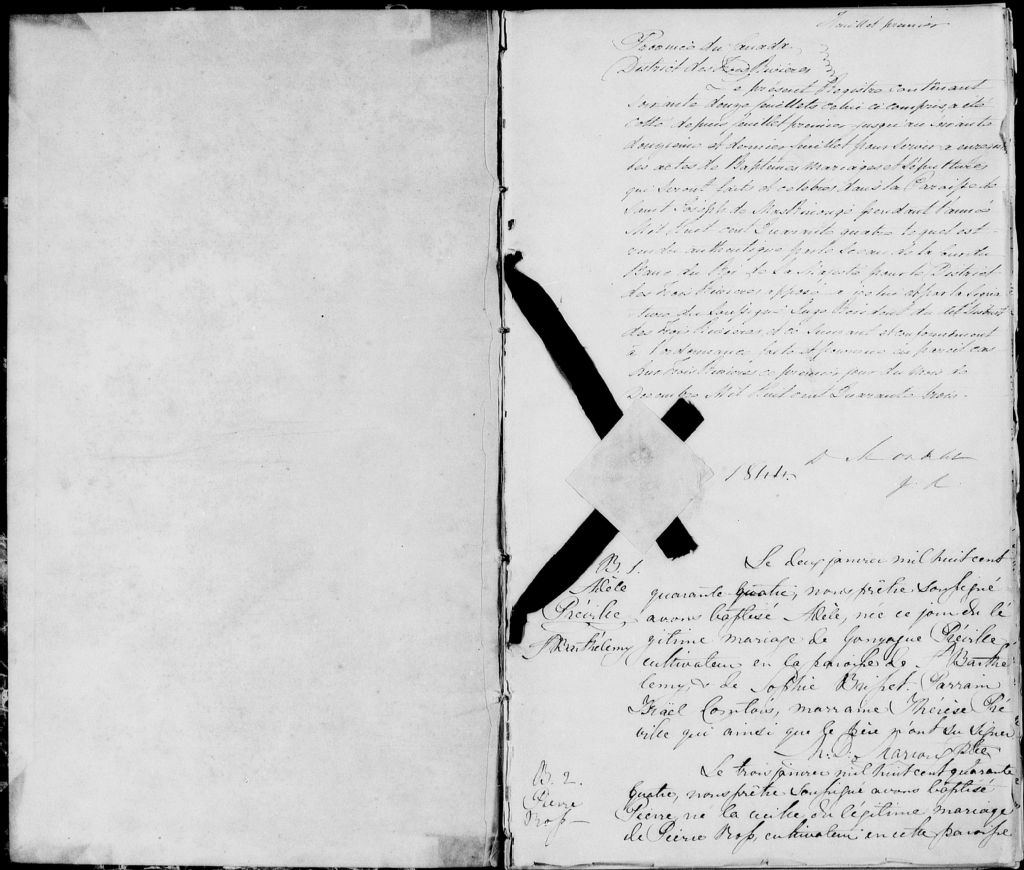 feuillet premier
Province du Canada
District des Trois Rivieres
Le présent Registre contenant
soixante douze feuillets celui ci compris a été
cotté depuis feuillet premier jusqu'au soixante
douzieme et dernier feuillet pour servir a
les actes de Baptêmes Mariages et Sépultures
qui seront faits et célébrés dans la Paroisse de
Saint Joseph de Maskinongé pendant l'année
Mil huit cent Quarante quatre lequel est
authentique par le Sceau de la Cour du
Banc du Roi de Sa Majesté pour le District
des Trois Rivieres apposé a icelui et par la Signa
ture du Soussigné Juge Resident du dit District
des Trois Rivieres et ce suivant et conformement
à l'ordonnance faite et pourvue en pareil cas
Trois Rivieres ce premier jour du mois de
Decembre Mil huit cent Quarante trois.
1844
B. 1.
Adèle
Préville
St Barthelemy
Le deux janvier mil huit cent
quarante quatre, nous prêtre soussigné
avons baptisé Adèle, née ce jour du lé
gitime mariage de Gonzague Préville
cultivateur en la paroisse de St Barthe
lemy, & de Sophie Brisset. Parrain
Comtois, marraine Thérèse Pré
ville qui ainsi que le père n'ont su signer
Marion Ptre
B. 2.
Pierre
Ross
Le trois janvier mil huit cent quarante
quatre, nous prêtre soussigné avons baptisé
Pierre né la veille du légitime mariage
de Pierre Ross, cultivateur en cette paroisse